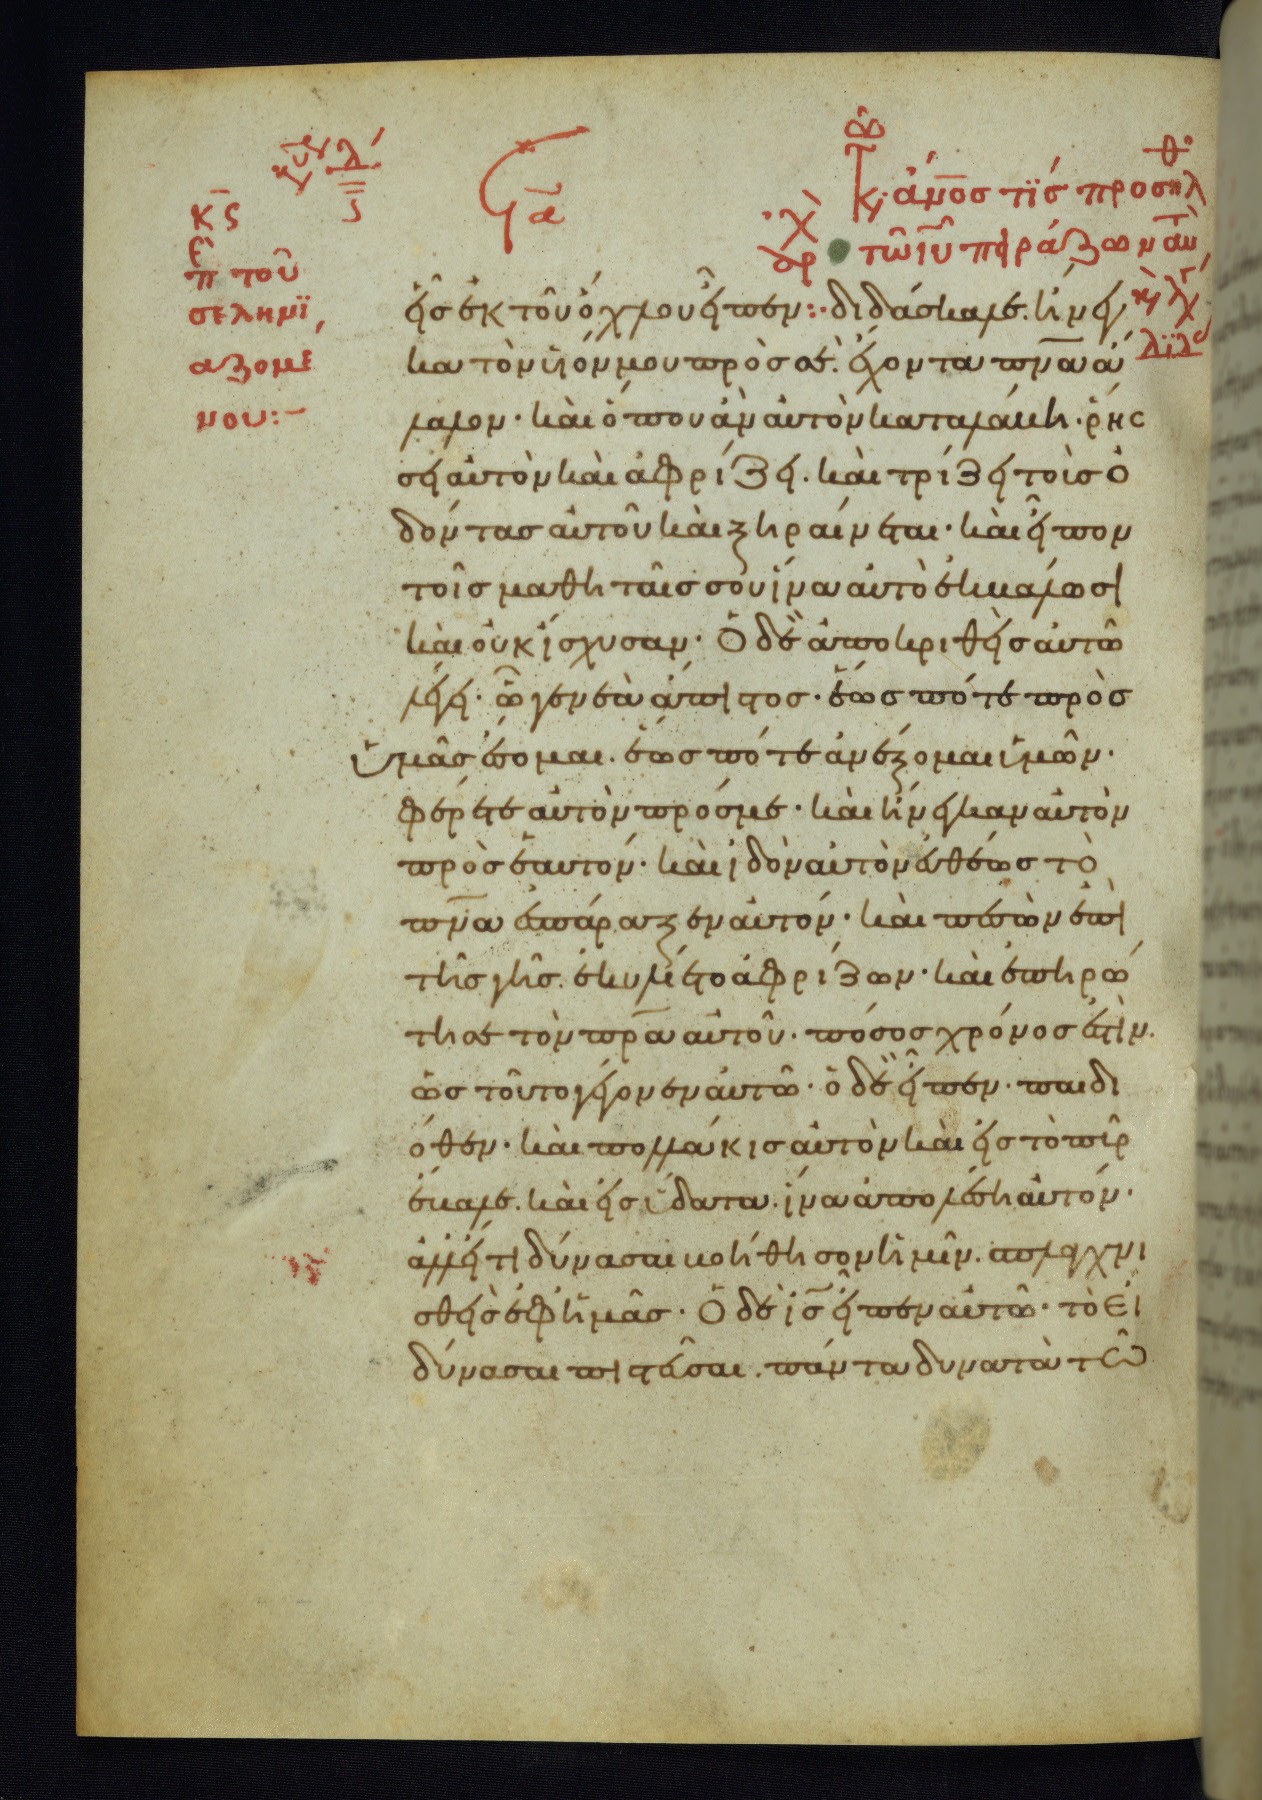 κϛ
π τοῦ
σεληνϊ
αζομέ
νου:–
κυ ἄν̅οσ τϊσ προσηλ
τῶ ιυ̅ πϊράζων
εἷσ ἐκ τοῦ ὄχλου εἶπεν:· διδάσκαλε. ἤνεγ
κα τὸν ϋἱόν μου πρὸσ σέ. ἔχοντα πν̅α ἄ
λαλον· καὶ ὅπου ἂν αὐτὸν καταλάβη· ῥήσ
σει αὐτὸν καὶ ἀφρίζει. καὶ τρίζει τοὶσ ὀ
δόντασ αὐτοῦ καὶ ξηραίνεται· καὶ εἶπον
τοῖσ μαθηταῖσ σου ἵνα αὐτὸ ἐκβάλωσι
καὶ οὐκ ἴσχυσαν· Ὁ δὲ ἀποκριθεὶσ αὐτῶ
λέγει· ὦ γενεὰ ἄπιστοσ· ἕωσ πότε πρὸσ
ὑμᾶσ ἔσομαι. ἕωσ πότε ἀνέξομαι ὑμῶν·
φέρετε αὐτὸν πρόσ με· καὶ ἤνεγκαν αὐτὸν
πρὸσ ἑαυτόν· καὶ ἰδὸν αὐτὸν εὐθέωσ τὸ
πν̅α ἐσπάραξεν αὐτόν· καὶ πεσὼν ἐπὶ
τῆσ γῆσ. ἐκυλίετο ἀφρίζων· καὶ ἐπηρώ
τησε τὸν πρ̅α αὐτοῦ· πόσοσ χρόνοσ ἐστὶν.
ὡσ τοῦτο γέγονεν αὐτῶ· ὁ δὲ εἶπεν· παιδι
όθεν· καὶ πολλάκισ αὐτὸν καὶ εἰσ τὸ πῦρ
ἔβαλε. καὶ εἰσ ὕδατα. ἵνα ἀπολέση αὐτόν·
ἀλλ εἴ τι δύνασαι βοήθησον ἡμῖν. σπλαχνι
σθεὶσ ἐφ ἡμᾶσ· Ὁ δὲ ἰσ̅ εἶπεν αὐτῶ· τὸ εἰ
δύνασαι πιστεῦσαι. πάντα δυνατὰ τῶ